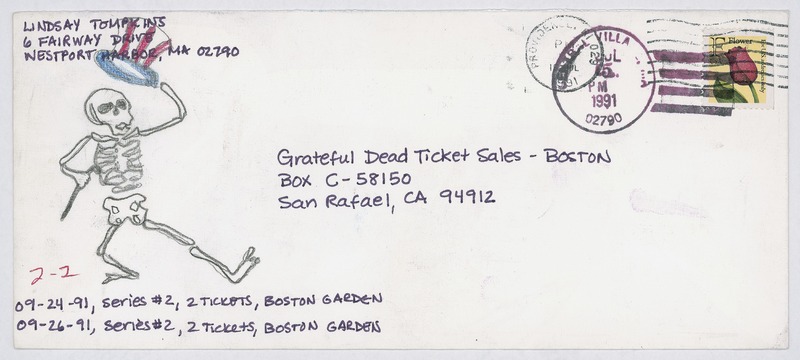 LINDSAY TOMPKINS
6 FAIRWAY DRIVE
WESTPORT HARBOR, MA 02790
PROVIDENCE,
PM
1991
VILLA
JUL
5
PM
1991
02790
F Flower
Grateful Dead Ticket Sales - BOSTON
BOX C-58150
San Rafael, CA 94912
2-2
09-24-91, Series #2, 2 TICKETS, BOSTON GARDEN
09-26-91, Series #2, 2 Tickets, BOSTON GARDEN